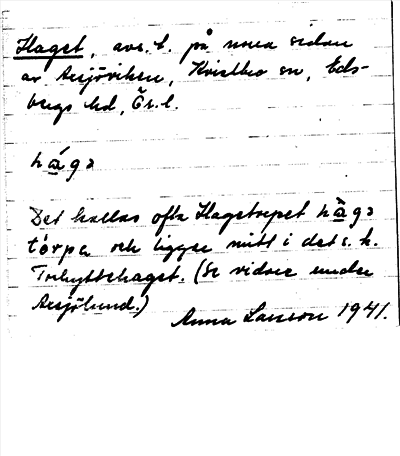 Haget, avs. l. på norra sidan
av Assjöviken, Kvistbro sn, Eds-
bergs hd, Ör. l.
hágə
Det kallas ofta Hagetorpet hàgə
tórpə och ligger mitt i det s. k.
Torhyttehaget. (Se vidare under
Assjölund.)
Anna Larsson 1941.